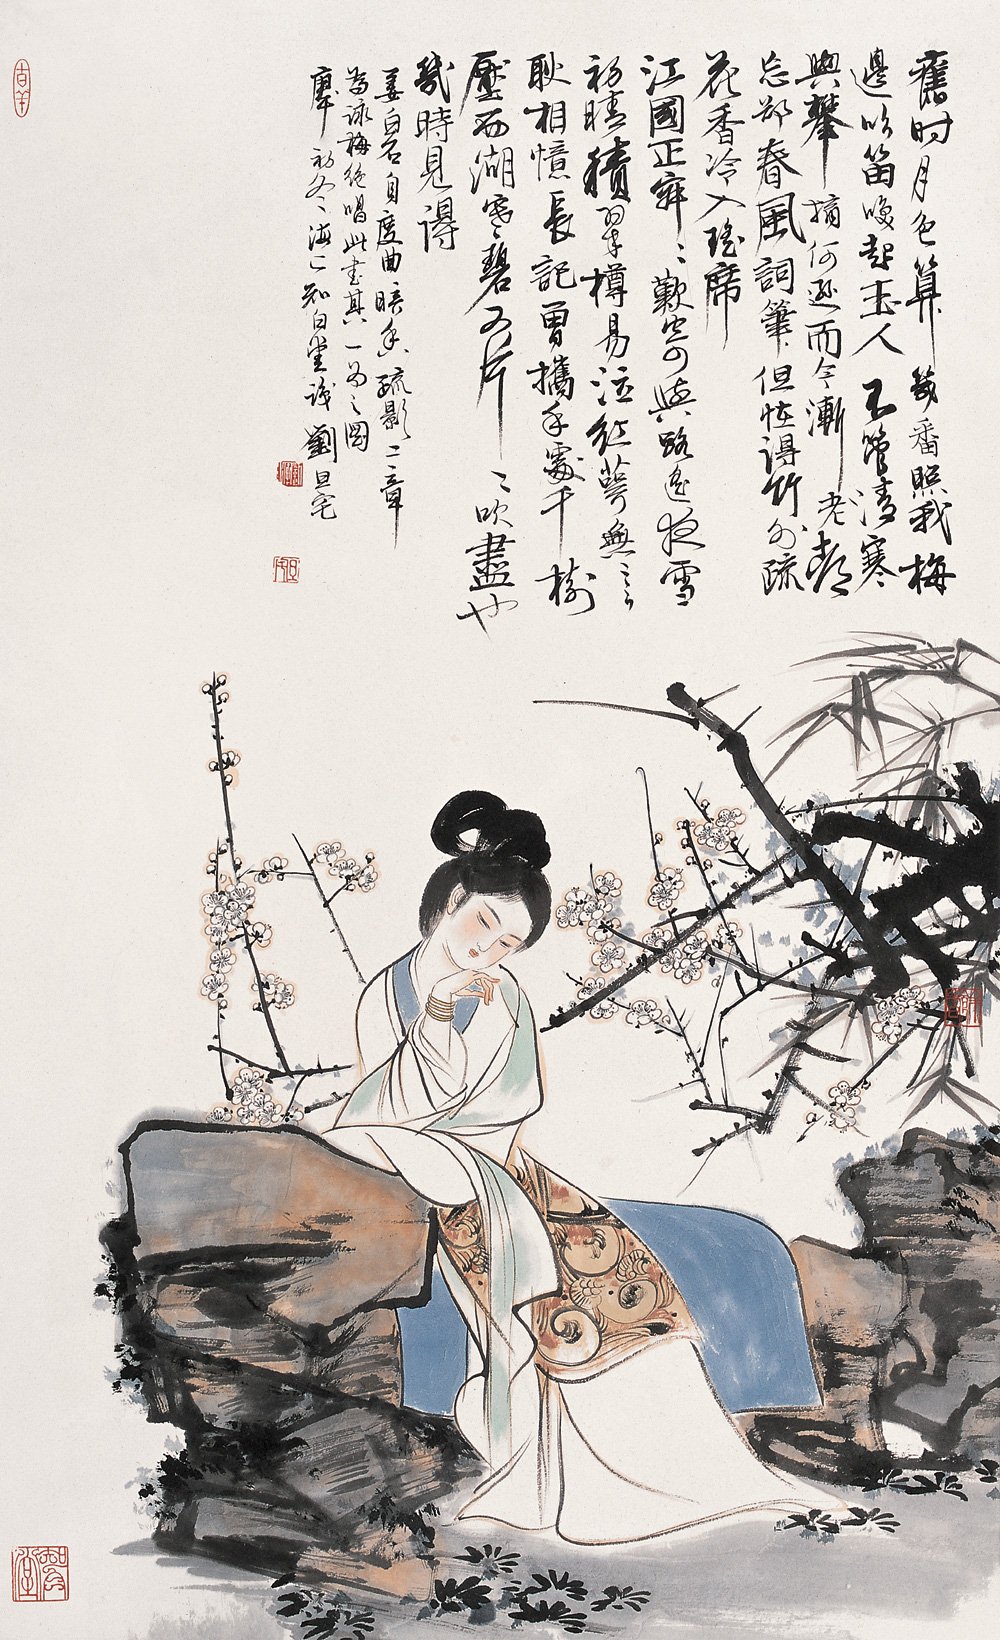 舊时月色算幾番照我梅
邊吹笛喚起玉人不管清寒
與攀摘何遜而今漸老都
忘卻春風詞筆但怪得竹外疏
花香冷入瑤席
江國正寂〻歎寄與路遙夜雪
初晴積翠樽易泣紅萼無言
耿相憶長記曾攜手處千樹
壓西湖寒碧又片〻吹盡也
幾時見得
姜白石自度曲暗香疏影二章
為詠梅絕唱此書其一為之圖
庚午初冬海上知白堂識劉旦宅
吉羊